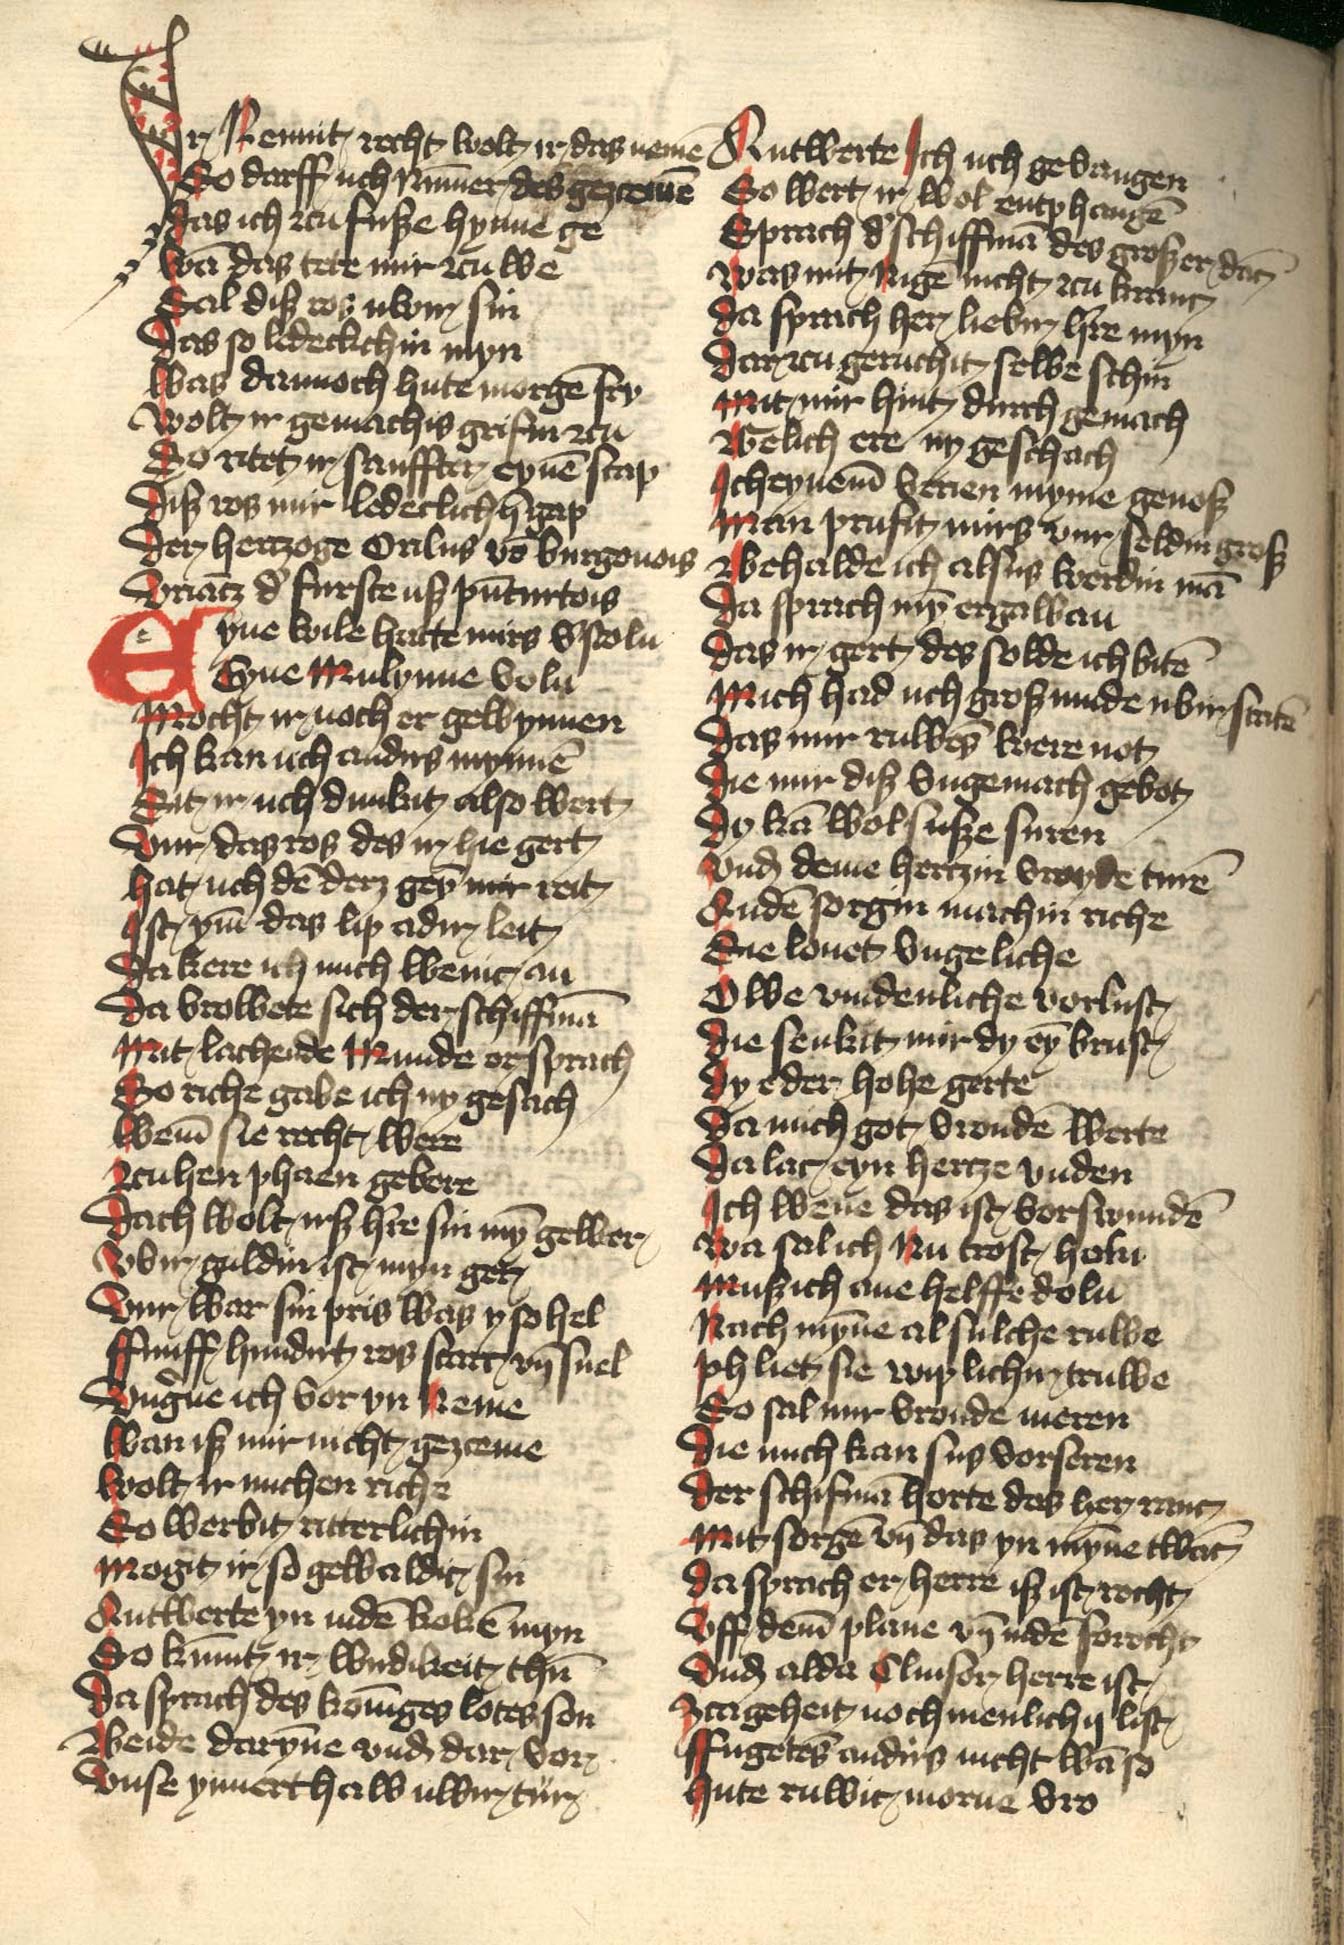 Ir Nemit recht wolt ir das nemē
So darff uch Nūmer des geczemē
das ich zcu fusze hynne ge
wā das tete mir zcu we
Sal disz ros uwir sin
das so ledeclichin myn
was dannoch hute morgē fry
wolt ir gemachis grifin zcu
So ritet ir sanfftir eynē stap
disz ros mir ledeclich gap
der hertzoge Orilus vō burgonois
vriātz d' furste usz pūturtois
Eyne wile hatte mirs v'stoln
Eyne Mulynne voln
Mocht ir noch er gewynnen
Ich kan uch andirs mynnē
Sit ir uch dunkit also wert
vur das ros des ir hie gert
hat uch dē derz gey mir reit
Ist ym̄ das lip adir leit
da kere ich mich wenic an
da vrowete sich der schiffmā
Mit lachende Munde er sprach
So riche gabe ich ny gesach
wem̄ sie recht were
zcu hen phaen gebere
dach wolt irsz h're sin my gewer
vbir guldin ist myn ger
vur war sin pris was y so hel
ffunff hundirt ros starc vn̄ snel
vng'ne ich vor yn Neme
wan isz mir nicht geczeme
wolt ir michen riche
So werbit ritterlichin
Mogit ir so gewaldic sin
Antwerte yn indē kokē myn
So kūnt ir wirdikeit thūn
da sprach des koniges lotes son
Beide daryne vnd dar vor
vnse ynnerthalw uwir tür
Antwerte Ich uch gevangen
So wert ir wol entphangē
Sprach d' schiffmā des groszer dāc
was mit Nigē nicht zcu kranc
da sprach her liebir h're myn
dar zcu geruchit selbe schin
Mit mir hint durch gemach
Welich ere ny geschach
Ich eynem̄ verien myme genosz
Man prufit mirs vur seldin grosz
Behalde ich alsus werdin mā
da sprach my ergawan
das ir gert des solde ich bitē
Mich had uch grosz mude ubir stritē
das mir ruwēs were not
die mir disz vngemach gebot
dy kā wol susze suren
vnd deme hertzin vroyde turē
Andē sorgin machin riche
Sie lonet vngeliche
O we vindenliche vorlust
die senkit mir dy ey brust
dy e der hohe gerte
da mich got vroudē werte
da lac eyn hertze vnden
Ich wene das ist vorswundē
wa sal ich Nu trost holn
Musz ich ane helffe doln
Nach myne al sulche ruwe
phliet sie wiplichir truwe
So sal mir vroude meren
die mich kan sus vorseren
der schifmā horte das her ranc
Mit sorgē vn̄ das yn myne twāc
da sprach er herre isz ist recht
vff dem̄ plane vn̄ indē forecht
vnd alda Clinsor herre ist
zcageheit noch menlich y list
ffugetēs andirs nicht wā so
hute ruwic morne vro